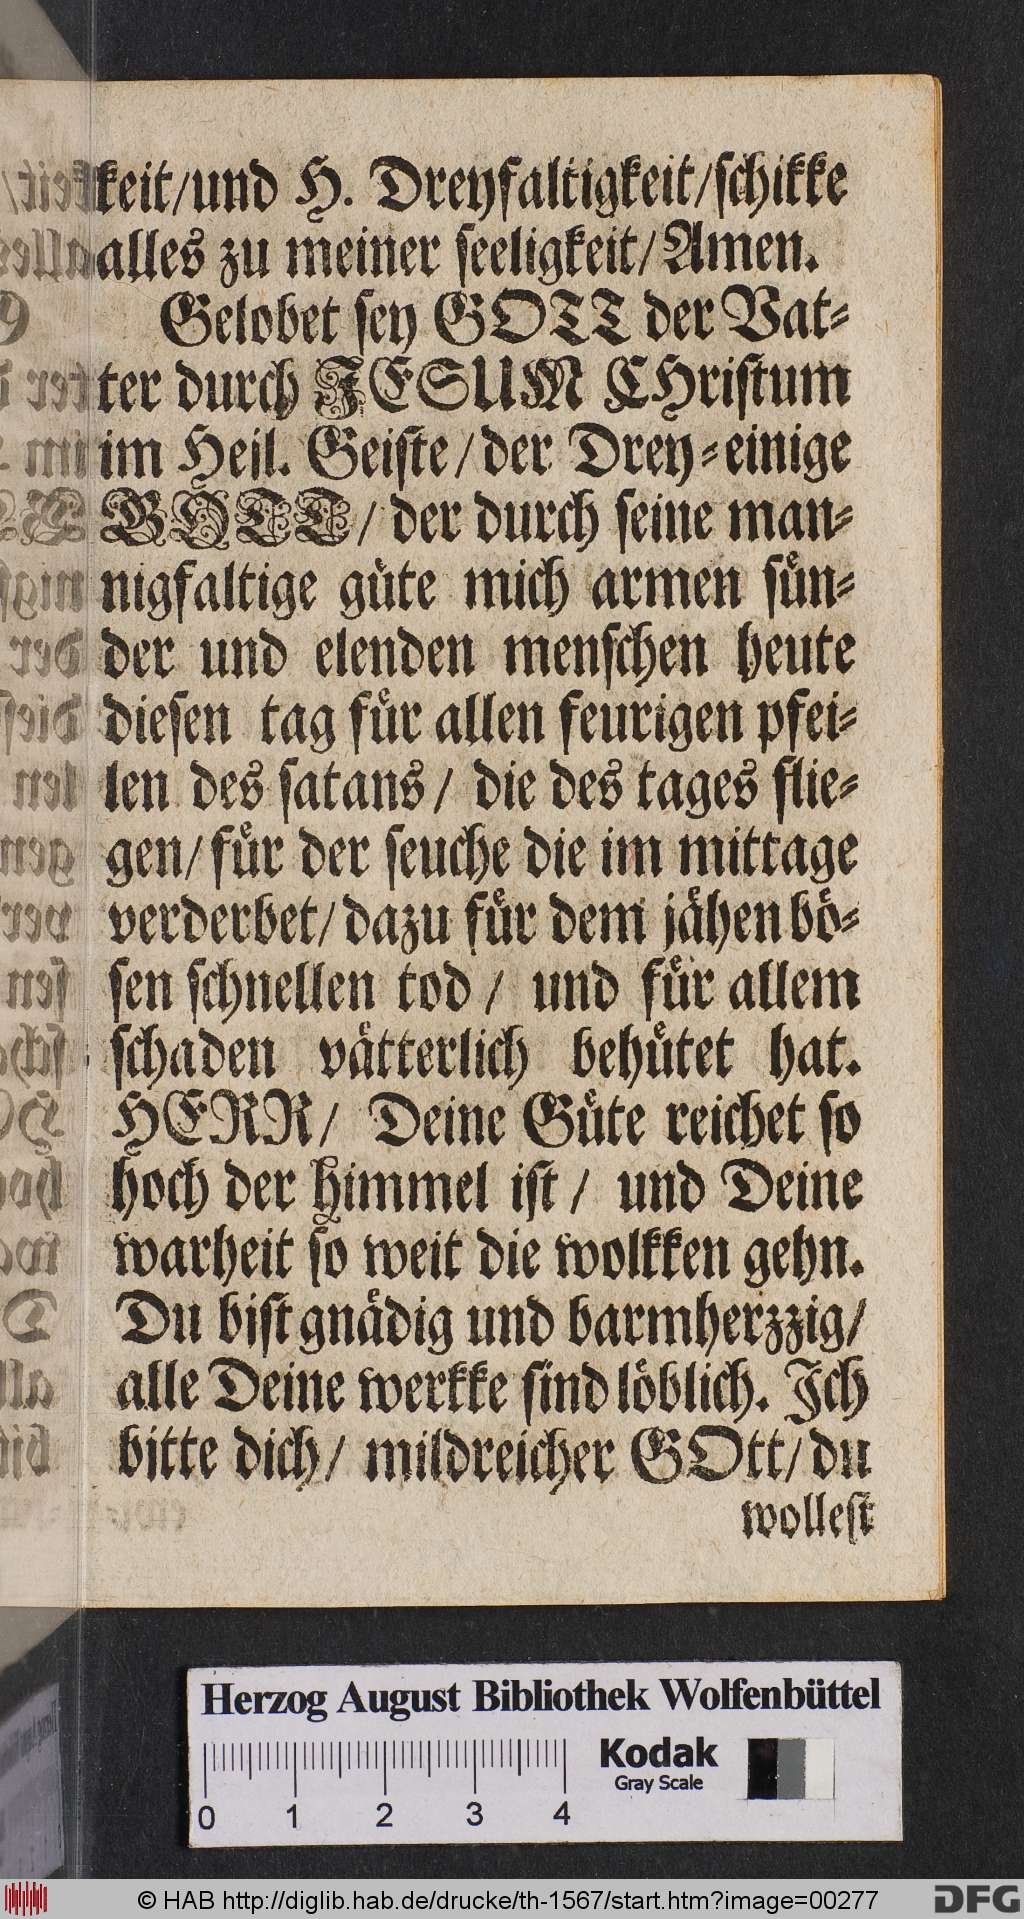 keit/und H. Dreyfaltigkeit/schikke
alles zu meiner seeligkeit/Amen.
Gelobet sey GOTT der Vat-
ter durch JESUM CHristum
im Heil. Geiste/der Drey-einige
GOTT/ der durch seine man-
nigfaltige gůte mich armen sůn-
der und elenden menschen heute
diesen tag fůr allen feurigen pfei-
len des satans/ die des tages flie-
gen/fůr der seuche die im mittage
verderbet/dazu fůr dem jåhen bö-
sen schnellen tod / und fůr allem
schaden våtterlich behůtet hat.
HERR/ Deine Gůte reichet so
hoch der himmel ist / und Deine
warheit so weit die wolkken gehn.
Du bist gnådig und barmherzzig/
alle Deine werkke sind löblich. Ich
bitte dich/ mildreicher GOtt/du
wollest
Herzog August Bibliothek Wolfenbüttel
0 1 2 3 4
Kodak
Gray Scale
© HAB http://diglib.hab.de/drucke/th-1567/start.htm?image=00277
DFG